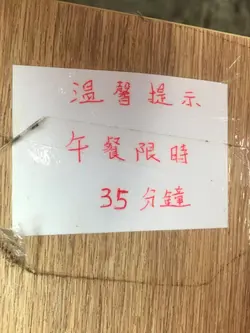 溫馨提示
午餐限時
35分鐘